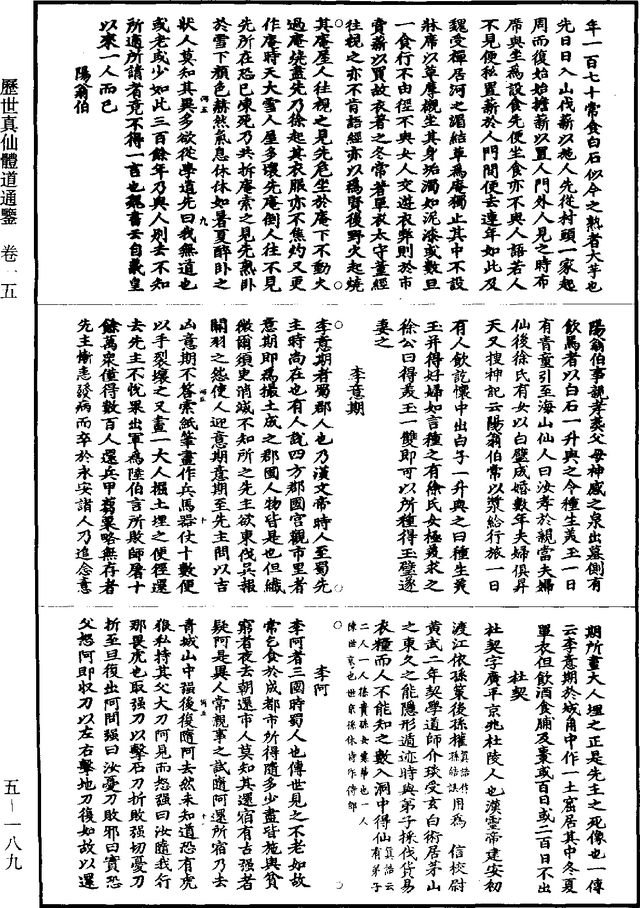 歷世真仙體道通鑒　卷一五
五—一八九
年一百七十常食白石似今之熟者大芋也
先日日入山伐薪以施人先從村頭一家起
周而復始始擔薪以置人門外人見之時布
席與坐為設食先便坐食亦不與人語若人
不見便私置薪於人門間便去連年如此及
魏受禪居河之湄結草為庵獨止其中不設
牀席以草蓐襯坐其身垢濁如泥漆或數旦
一食行不由徑不與女人交遊衣弊則於市
賣薪以買故衣著之冬常著單衣太守董經
往視之亦不肯語經亦以為賢後野火起燒
其庵屋人往視之見先危坐於庵下不動火
過庵燒盡先乃徐起其衣服亦不焦灼又更
作庵時天大雪人屋多壞先庵倒人往不見
先所在恐已凍死乃共拆庵索之見先熟卧
於雪下顏色赫然氣息休休如暑夏醉卧之
狀人莫知其異多欲從學道先曰我無道也
或老或少如此三百餘年乃與人別去不知
所適所請者竟不得一言也魏書云自羲皇
以來一人而已
陽翁伯
陽翁伯事親孝葬父母神感之泉出墓側有
飲馬者以白石一升與之令種生美玉一日
有青童引至海山仙人曰汝孝於親當夫婦
仙後徐氏有女以白璧成婚數年夫婦俱昇
天又搜神記云陽翁伯常以漿給行旅一日
有人飲訖懷中出白子一升與之曰種生美
玉并得好婦如言種之有徐氏女極美求之
徐公曰得美玉一雙即可以所種得玉璧遂
妻之
李意期
李意期者蜀郡人也乃漢文帝時人至蜀先
主時尚在也有人說四方郡國宮觀市里者
意期即為撮土成之郡國人物皆是也但纖
微爾須史消滅不知所之先主欲東伐吳報
關羽之怨使人迎意期意期至先主問以吉
凶意期不答索紙筆畫作兵馬器仗十數便
以手裂壞之又畫一大人掘土埋之便徑還
去先主不悅果出軍為陸伯言所敗師屠十
餘萬衆僅得數百人還兵甲芻粟略無存者
先主慚恚發病而卒於永安諸人乃追念意
期所畫大人埋之正是先主之死像也一傳
云李意期於城角中作一土窟居其中冬夏
單衣但飲酒食脯及棗或百日或二百日不出
杜契
杜契字廣平京兆杜陵人也漢靈帝建安初
渡江依孫策後孫權用為　信校尉
黃武二年契學道師介琰受玄白術居茅山
之東久之能隱形遁迹時與弟子採伐貨易
衣糧而人不能知之數入洞中得仙
李阿
李阿者三國時蜀人也傳世見之不老如故
常乞食於成都市所得隨多少盡皆施與貧
窮者夜去朝還市人莫知其還宿有古強者
疑阿是異人常親事之試隨阿還所宿乃去
青城山中強後復隨阿去然未知道恐有虎
狼私持其父大刀阿見而怒強曰汝隨我行
那畏虎也取強刀以擊石刀折敗強切憂刀
折至旦復出阿問強曰汝憂刀敗邪曰實恐
父怒阿即收刀以左右擊地刀復如故以還